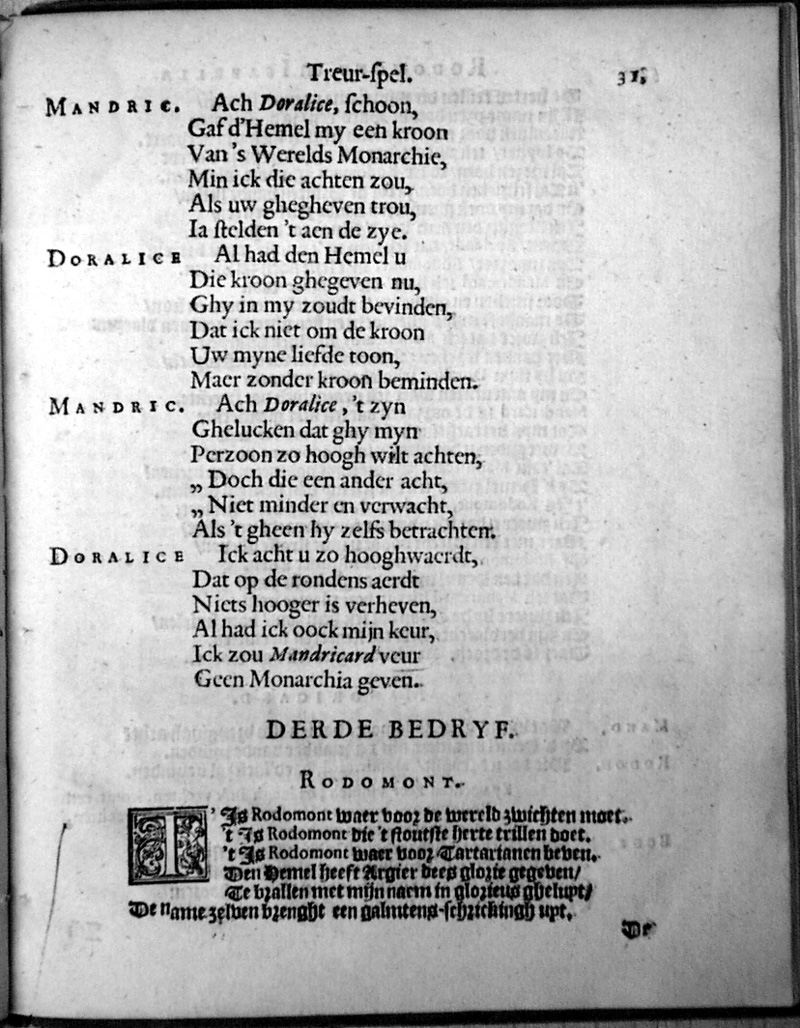 Treur-ſpel. 31.
MANDRIC. Ach Doralice, ſchoon,
Gaf d'Hemel my een kroon
Van 's Werelds Monarchie,
Min ick die achten zou,
Als uw ghegheven trou,
Ia ſtelden 't aen de zye.
DORALICE Al had den Hemel u
Die kroon ghegeven nu,
Ghy in my zoudt bevinden,
Dat ick niet om de kroon
Uw myne liefde toon,
Maer zonder kroon beminden.
MANDRIC. Ach Doralice, 't zyn
Ghelucken dat ghy myn
Perzoon zo hoogh wilt achten,
„ Doch die een ander acht,
„ Niet minder en verwacht,
Als 't gheen hy zelfs betrachten.
DORALICE Ick acht u zo hooghwaerdt,
Dat op de rondens aerdt
Niets hooger is verheven,
Al had ick oock mijn keur,
Ick zou Mandricard veur
Geen Monarchia geven.
DERDE BEDRYF.
RODOMONT.
T' Is Rodomont waer voor de wereld zwichten moet.
't Is Rodomont die 't ſtoutſte herte trillen doet.
't Is Rodomont waer voor Tartarianen beven.
Den Hemel heeft Argier dees glorie gegeven/
Te brallen met mijn naem in glorieus ghelupt/
De name zelven brenght een galmtens-ſchrickingh upt.
De